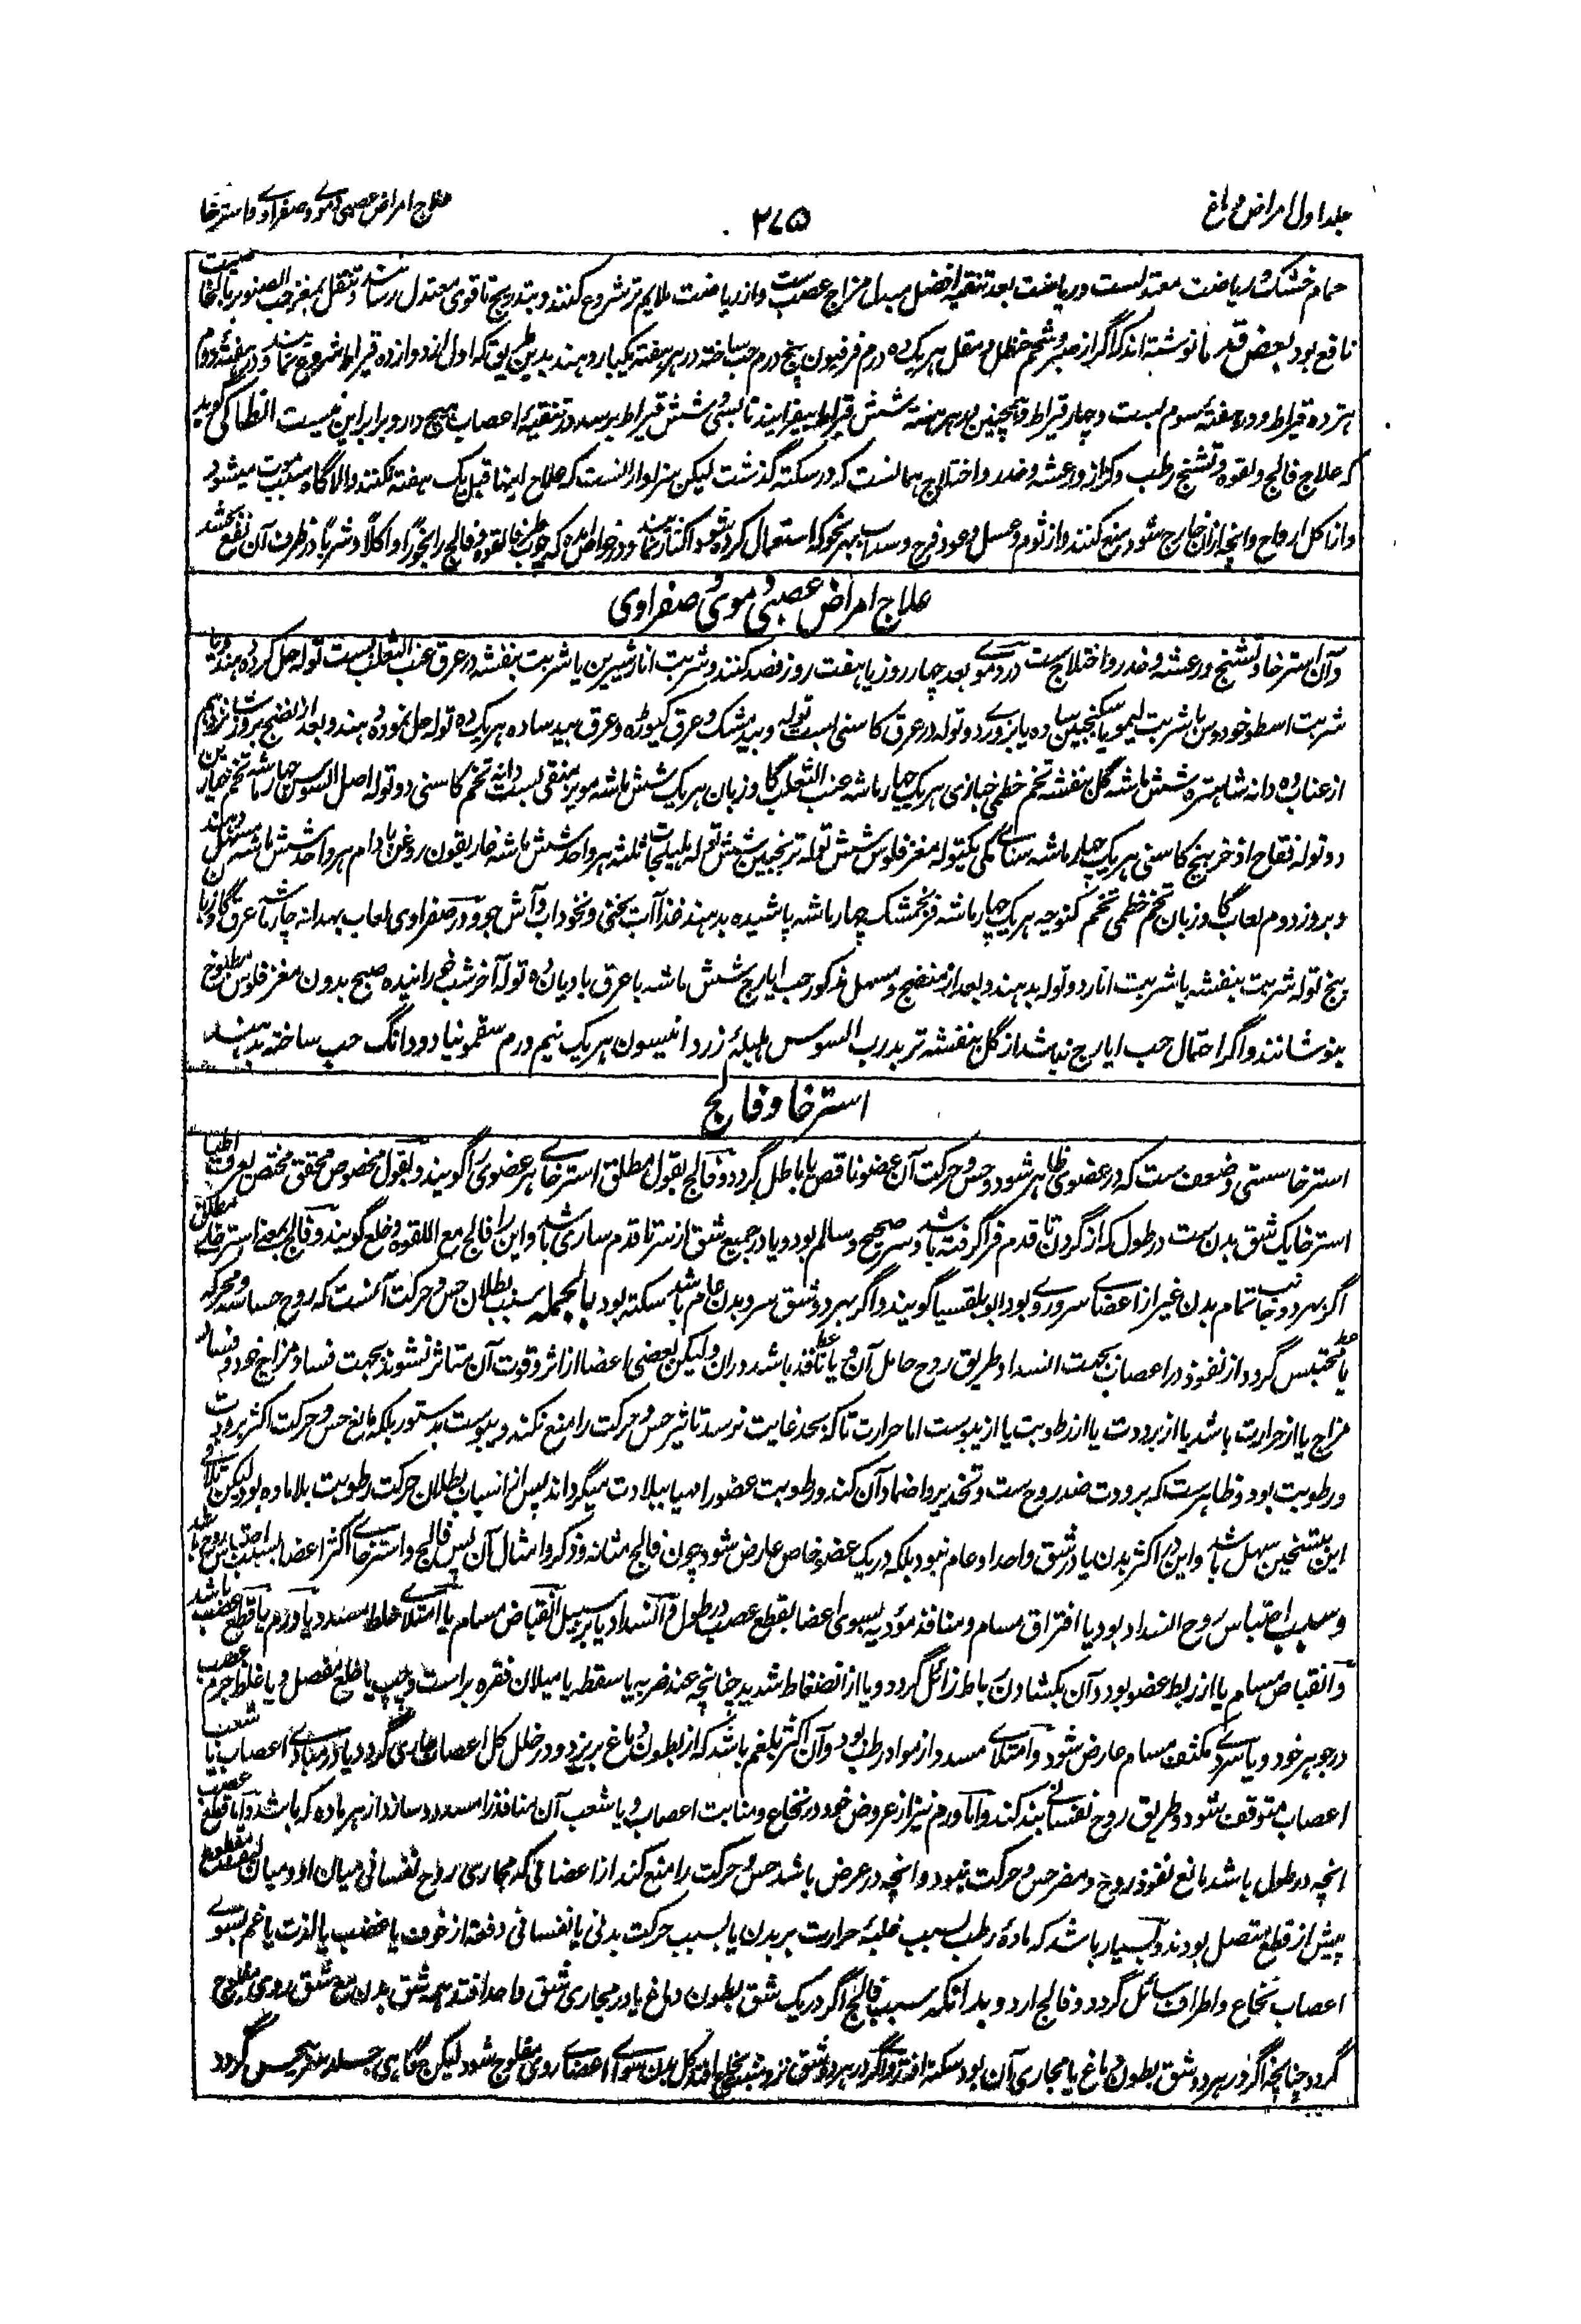 جلد اول امراض دماغ
۲۷۵
علاج امراض عصبی دموی و صفراوی و استرخا
حمام خشک و ریاضت معتدلست و ریاضت بعد تنقیه افضل مبدل مزاج عصب ست و از ریاضت ملایم تر شروع کنند و بتدریج تا قوی معتدل رسانند و تنقل بمغز حب الصنوبر بالخاصیت
نافع بود بعض قدما نوشته اند که اگر از صبر و شحم حنظل و مقل هر یک ده درم فرفیون پنج درم حب ساخته در هر هفته یکبار دهند بدین طریق که اول از دوازده قیراط شروع نمایند و در هفتۀ دوم
هژده قیراط و در هفتۀ سوم بست و چهار قیراط و همچنین هر هفته شش قیراط بیفزایند تا بسی و شش قیراط برسد در تنقیۀ اعصاب هیچ دارو برابر این نیست انطاکی گوید
که علاج فالج و لقوه و تشنج رطب و کزاز و رعشه و خدر و اختلاج همانست که در سکته گذشت لیکن سزاوار آنست که علاج اینها قبل یک هفته نکنند والا گاه سبب موت میشود
و از اکل ارواح و آنچه ازان خارج شود منع کنند و از ثوم و عسل و عود قرح و سداب بهر نحو که استعمال کرده شود اکثار نمایند و در خواص آمده که چوب طرفا لقوه و فالج را بخورا و اکلاً و شرباً در ظرف آن نفع بخشد
علاج امراض عصبی دموی و صفراوی
و آن استرخا و تشنج و رعشه و خدر و اختلاج ست در دموی بعد چهار روز یا هفت روز فصد کنند و شربت انار شیرین یا شربت بنفشه در عرق عنب الثعلب بست توله حل کرده دهند و یا
شربت اسطوخودوس یا شربت لیمو یا سکنجبین ساده یا بزوری دو توله در عرق کاسنی بست توله و بید مشک و عرق کیوڑه و عرق بید ساده هر یک ده توله حل نموده دهند و بعد از نضج بروز شانزدهم
از عناب ده دانه شاهتره شش ماشه گل بنفشه تخم خطمی خبازی هر یک چهار ماشه عنب الثعلب گاوزبان هر یک شش ماشه مویز منقی بست دانه تخم کاسنی دو توله اصل السوس چهار ماشه تخم خیارین
دو توله فقاح اذخر بیخ کاسنی هر یک چهار ماشه سنای مکی یکتوله مغز فلوس شش توله ترنجبین شش توله هلیلجات ثلثه هر واحد شش ماشه غاریقون روغن بادام هر واحد شش ماشه مسهل دهند
و بروز دوم لعاب گاوزبان تخم خطمی تخم کنوچه هر یک چهار ماشه فرنجمشک چهار ماشه پاشیده بدهند غذا آب یخنی و نخوداب و آش جو و در صفراوی لعاب بهدانه چار ماشه عرق گاوزبان
پنج توله شربت بنفشه یا شربت انار دو توله بدهند و بعد از منضج و مسهل مذکور حب ایارج شش ماشه با عرق بادیان ده توله آخر شب خورانیده صبح بدون مغز فلوس مطبوخ
بنوشانند و اگر احتمال حب ایارج نباشد از گل بنفشه تربد رب السوس هلیلۀ زرد انیسون هر یک نیم درم سقمونیا دو دانگ حب ساخته بدهند
استرخا و فالج
استرخا سستی و ضعف ست که در عضوی ظاهر شود و حس و حرکت آن عضو ناقص یا باطل گردد و فالج بقول مطلق استرخای هر عضوی را گویند و بقول مخصوص محقق مختص بعرف اطبا
استرخا یک شق بدن ست در طول که از گردن تا قدم فرا گرفته باشد و سر صحیح و سالم بود و یا در جمیع شق از سر تا قدم ساری باشد و این را فالج مع اللقوه و خلع گویند و فالج بمعنی استرخای مطلق
اگر بهر دو جانب تمام بدن غیر از اعضای سر و روی بود ابوبلقسیا گویند و اگر بهر دو شق سر و بدن عام باشد سکته بود بالجمله سبب بطلان حس و حرکت آنست که روح حساسه و محرکه
یا محتبس گردد از نفوذ در اعصاب بجهت انسداد طریق روح حامل آن و یا نافذ باشد دران ولیکن بعضی اعضا از اثر و قوت آن متاثر نشوند بجهت فساد مزاج خود و فساد
مزاج یا از حرارت باشد یا از برودت یا از رطوبت یا از یبوست اما حرارت تا که بحد غایت نرسد تاثیر حس و حرکت را منع نکند و یبوست بدستور بلکه مانع حس و حرکت اکثر برودت
و رطوبت بود و ظاهر ست که برودت ضد روح ست و تخدیر و اخماد آن کند و رطوبت عضو را مهیا ببلادت میگرداند پس از اسباب بطلان حرکت رطوبت بلا ماده بود لیکن تلافی
این بتسخین سهل باشد و این در اکثر بدن یا در شق واحد و عام نبود بلکه در یک عضو خاص عارض شود چون فالج مثانه و ذکر و امثال آن پس فالج و استرخای اکثر اعضا بسبب احتباس روح باشد
و سبب احتباس روح انسداد بود یا افتراق مسام و منافذ مؤدیه بسوی اعضا بقطع عصب در طول و انسداد یا بر سبیل انقباض مسام یا امتلای خلط مسدد یا ورم یا قطع عصب باشد
و انقباض مسام یا از ربط عضو بود و آن بکشادن رباط زائل گردد و یا از انضغاط شدید چنانچه عند ضربه یا سقطه یا میلان فقره براست و چپ یا خلع مفصل و یا غلظ جرم عصب
در جوهر خود و یا سردی مکثف مسام عارض شود و امتلای مسدد از مواد رطب بود و آن اکثر بلغم باشد که از بطون دماغ بریزد و در خلل کل اعصاب جاری گردد یا در مبادی اعصاب یا شعب
اعصاب متوقف شود و طریق روح نفسانی بند کند و اما ورم نیز از عروض خود در نخاع و منابت اعصاب و یا شعب آن منافذ را مسدود سازد از هر ماده که باشد و اما قطع عصب
آنچه در طول باشد مانع نفوذ روح و مضر حس و حرکت نبود و آنچه در عرض باشد حس و حرکت را منع کند از اعضائی که مجاری روح نفسانی میان او و میان لیف مقطوع
پیش از قطع متصل بودند و بسیار باشد که مادۀ رطب بسبب غلبۀ حرارت بر بدن یا بسبب حرکت بدنی یا نفسانی دفعة از خوف یا غضب یا لذت یا غم بسوی
اعصاب نخاع و اطراف سائل گردد و فالج آرد و بدانکه سبب فالج اگر در یک شق بطون دماغ یا در مجاری شق واحد افتد همه شق بدن مع شق روی مفلوج
گردد چنانچه اگر در هر دو شق بطون دماغ یا مجاری آن بود سکته افتد و اگر در هر دو شق نزد منبت نخاع افتد کل بدن سوای اعضای روی مفلوج شود لیکن گاهی جلد سر بیحس گردد